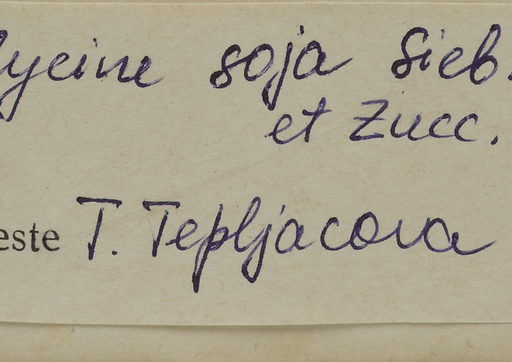 lycine soja Sieb.
et Zucc.
este T. Tepljacova